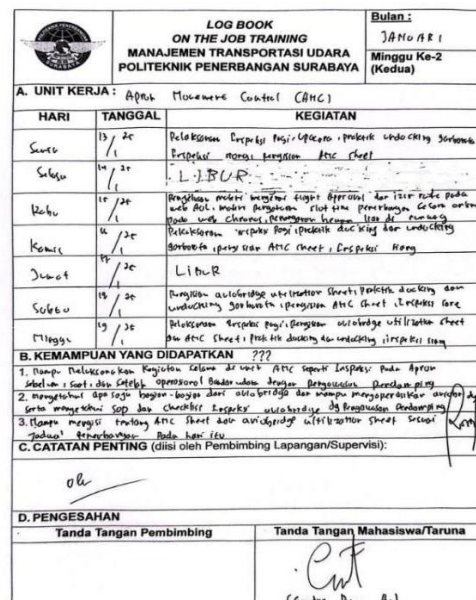 LOG BOOK
ON THE JOB TRAINING
MANAJEMEN TRANSPORTASI UDARA
POLITEKNIK PENERBANGAN SURABAYA
Bulan :
JANUARI
Minggu Ke-2
(Kedua)
A. UNIT KERJA : Apron Movement Control (AMC)
HARI TANGGAL KEGIATAN
Senin 13/1 25 Pelaksanaan Inspeksi Pagi, Upacara, praktik undocking garbarata
Inspeksi AMC sheet
Selasa 14/1 25 LIBUR
Rabu 15/1 25 flight Approval dan izin rute pada
slot time penerbangan secara
pada web chronos, hewan liar di runway
Kamis 16/1 25 Inspeksi Pagi, praktik docking dan undocking
garbarata, pengisian AMC sheet, Inspeksi siang
Jumat 17/1 25 LIBUR
Sabtu 18/1 25 Pengisian aviobridge utilization sheet, Praktik docking dan
undocking garbarata, pengisian AMC sheet, Inspeksi sore
Minggu 19/1 25 Pelaksanaan Inspeksi Pagi, Pengisian aviobridge utilization sheet
dan AMC sheet, Praktik docking dan undocking, inspeksi siang
B. KEMAMPUAN YANG DIDAPATKAN ???
1. Mampu Melaksanakan Kegiatan selama di unit AMC seperti Inspeksi Pada Apron
sebelum, saat, dan setelah operasional Bandar udara dengan pengawasan Pendamping
2. mengetahui apa saja bagian-bagian dari aviobridge dan mampu mengoperasikan
serta mengetahui SOP dan checklist Inspeksi aviobridge dg Pengawasan Pendamping
3. Mampu mengisi tentang AMC Sheet dan aviobridge utilization sheet sesuai
Jadwal Penerbangan Pada hari itu
C. CATATAN PENTING (diisi oleh Pembimbing Lapangan/Supervisi):
D. PENGESAHAN
Tanda Tangan Pembimbing Tanda Tangan Mahasiswa/Taruna